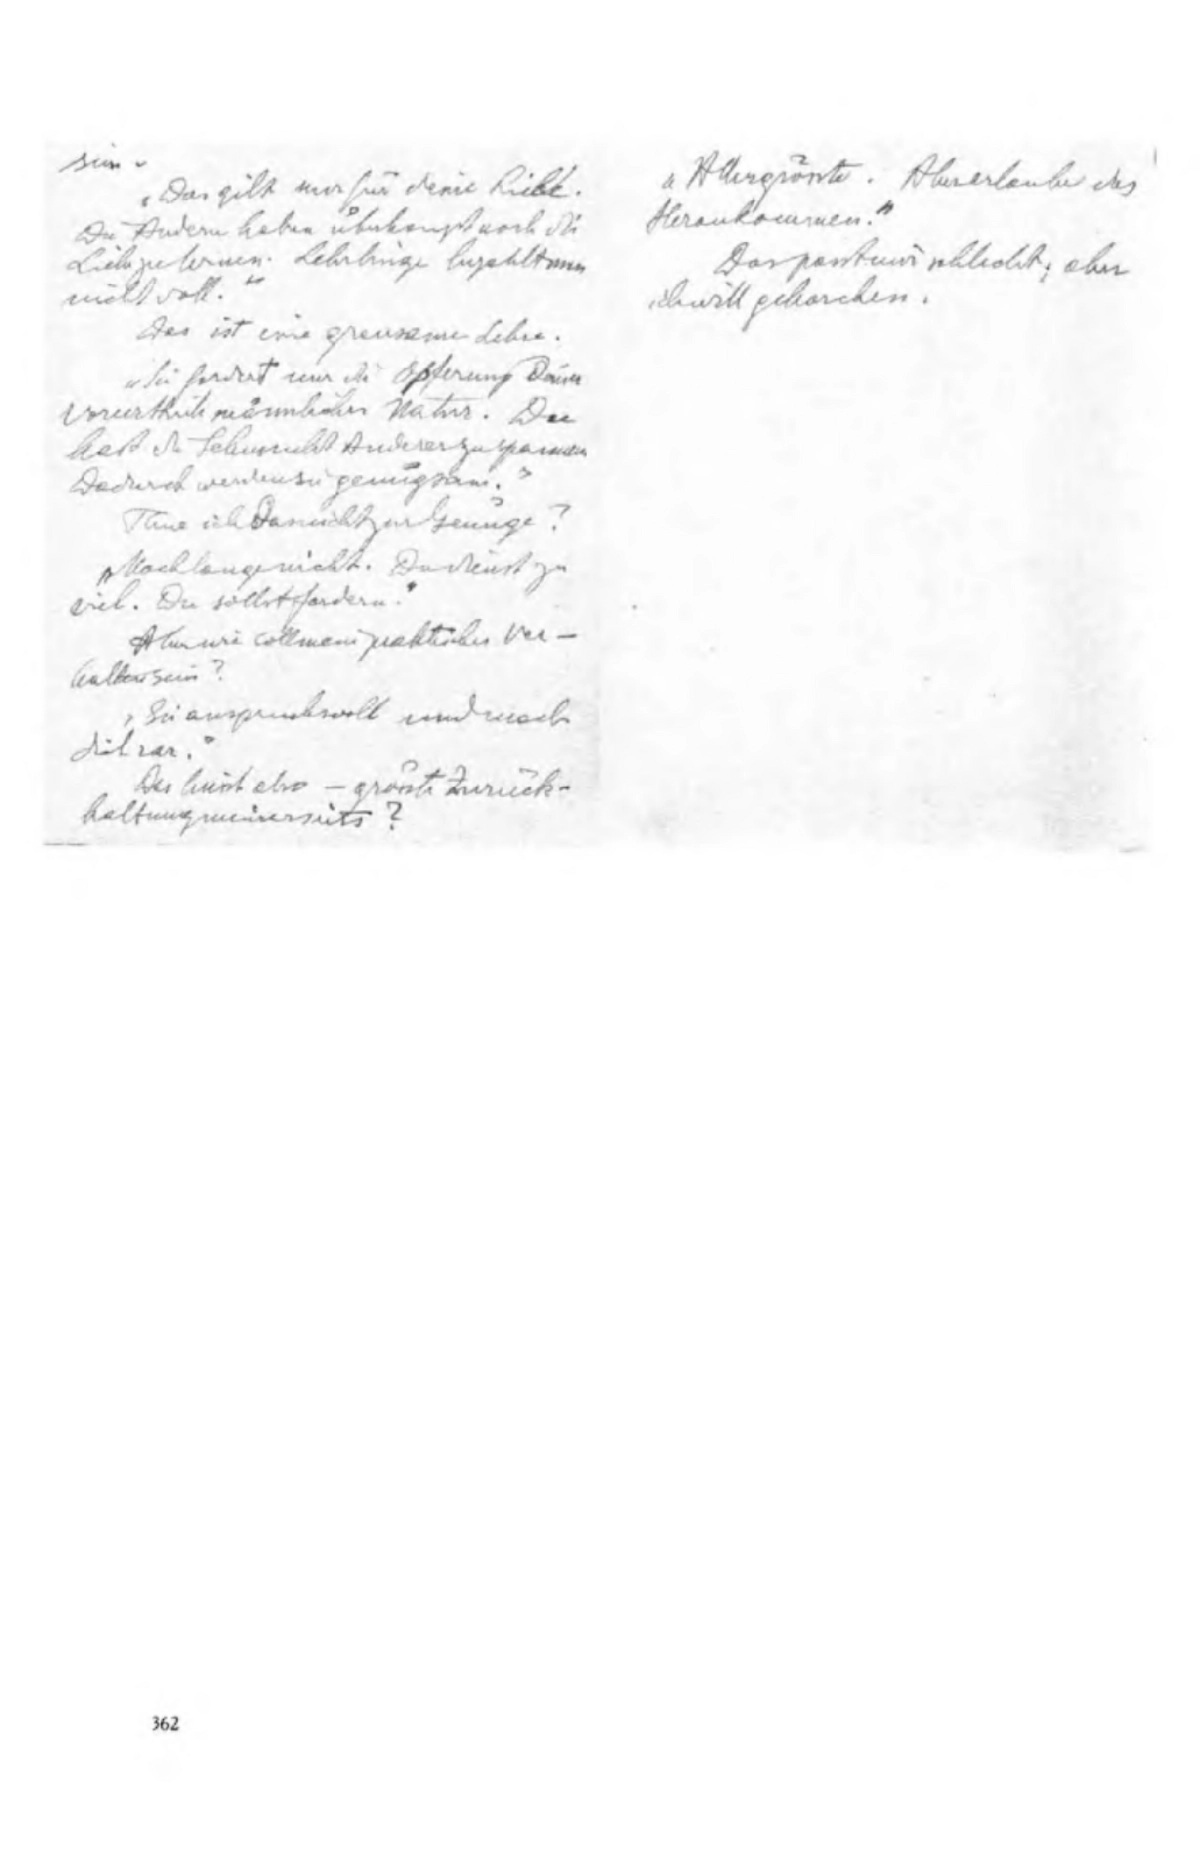 sein.
„Das gilt nur für deine Liebe.
Die Andern haben überhaupt noch die
Liebe zu lernen. Lehrlinge bezahlt man
nicht voll."
Das ist eine grausame Lehre.
„Sie fordert nur die Opferung Deiner
vorurtheil männlichen Natur. Du
hast die Sehnsucht Anderer zu spannen
Dadurch werden sie genügsam."
Thue ich Das nicht zur Genüge?
„Noch lange nicht. Du dienst zu
viel. Du sollst fordern."
Aber wie soll mein praktisches Ver-
halten sein?
„Sei anspruchsvoll und mach
dich rar."
Das heisst also – grösste Zurück-
haltung meinerseits?
„Allergrösste. Aber erlaube das
Herankommen."
Das passt mir schlecht; aber
ich will gehorchen.
362